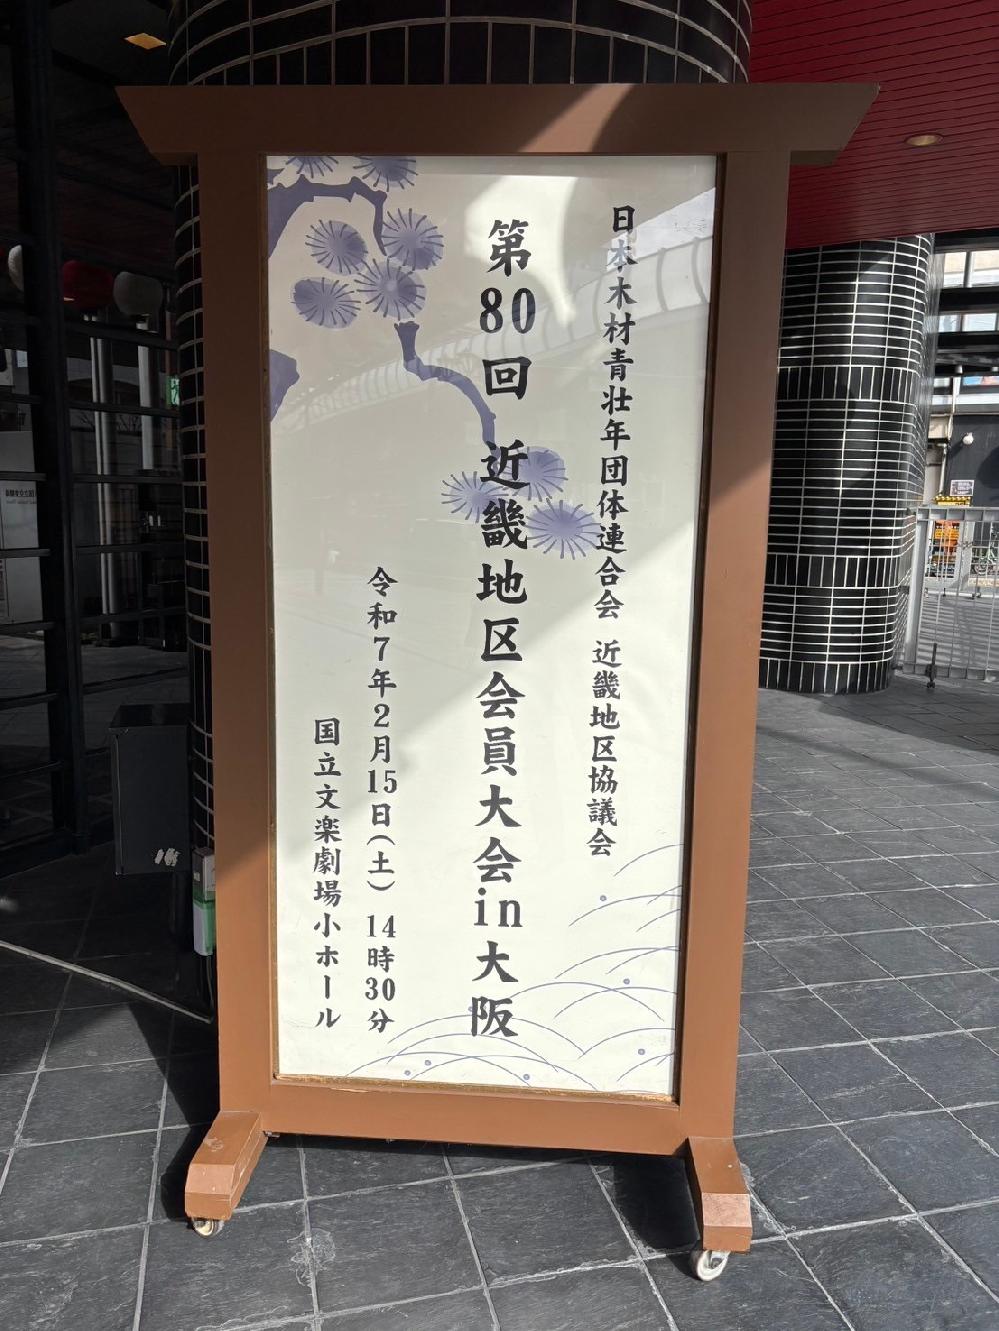 日本木材青壮年団体連合会 近畿地区協議会
第80回 近畿地区会員大会in大阪
令和7年2月15日(土) 14時30分
国立文楽劇場小ホール